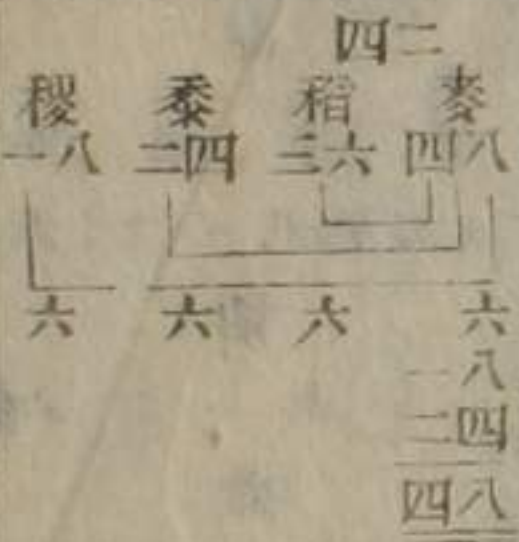 四二
稷 黍 稻 麥
一八 二四 三六 四八
六 六 六 六
一八
二四
四八